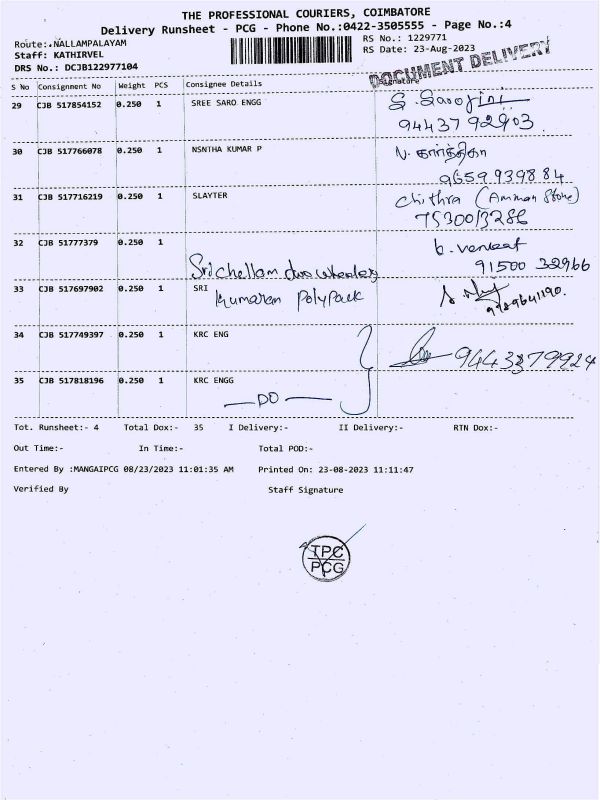 THE PROFESSIONAL COURIERS, COIMBATORE
Delivery Runsheet - PCG - Phone No.:0422-3505555 - Page No.:4
Route:.NALLAMPALAYAM RS No.: 1229771
Staff: KATHIRVEL RS Date: 23-Aug-2023
DRS No.: DCJB122977104 DOCUMENT DELIVERY
S No Consignment No Weight PCS Consignee Details Signature
29 CJB 517854152 0.250 1 SREE SARO ENGG S. Sarojini
9443792903
30 CJB 517766078 0.250 1 NSNTHA KUMAR P
9659939884
31 CJB 517716219 0.250 1 SLAYTER Chithra (Amman Store)
7530013286
32 CJB 51777379 0.250 1 b. venkat
Sri chellam 91500 32966
33 CJB 517697902 0.250 1 SRI
Kumaran Polypack 9789641190.
34 CJB 517749397 0.250 1 KRC ENG
9443379924
35 CJB 517818196 0.250 1 KRC ENGG
— DO —
Tot. Runsheet:- 4 Total Dox:- 35 I Delivery:- II Delivery:- RTN Dox:-
Out Time:- In Time:- Total POD:-
Entered By :MANGAIPCG 08/23/2023 11:01:35 AM Printed On: 23-08-2023 11:11:47
Verified By Staff Signature
TPC
PCG